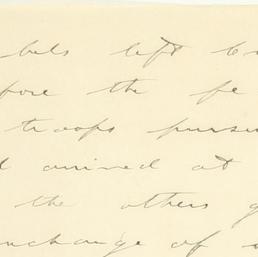 bels left
fore the fe
troops pursu
d arrived at
the others g
nchange of